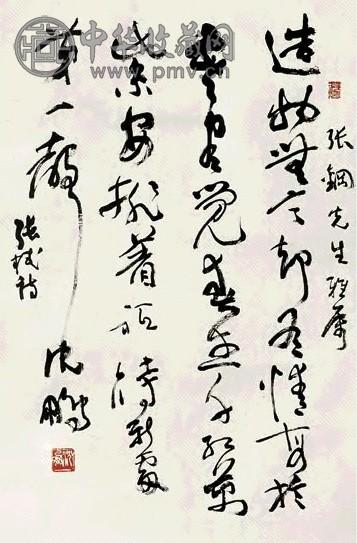 中华收藏网
www.pmv.cn
張鋼先生雅屬
造物無言却有情每於
寒盡覺春生千紅萬
紫安排著祗待新雷
第一聲
張栻詩
沈鵬